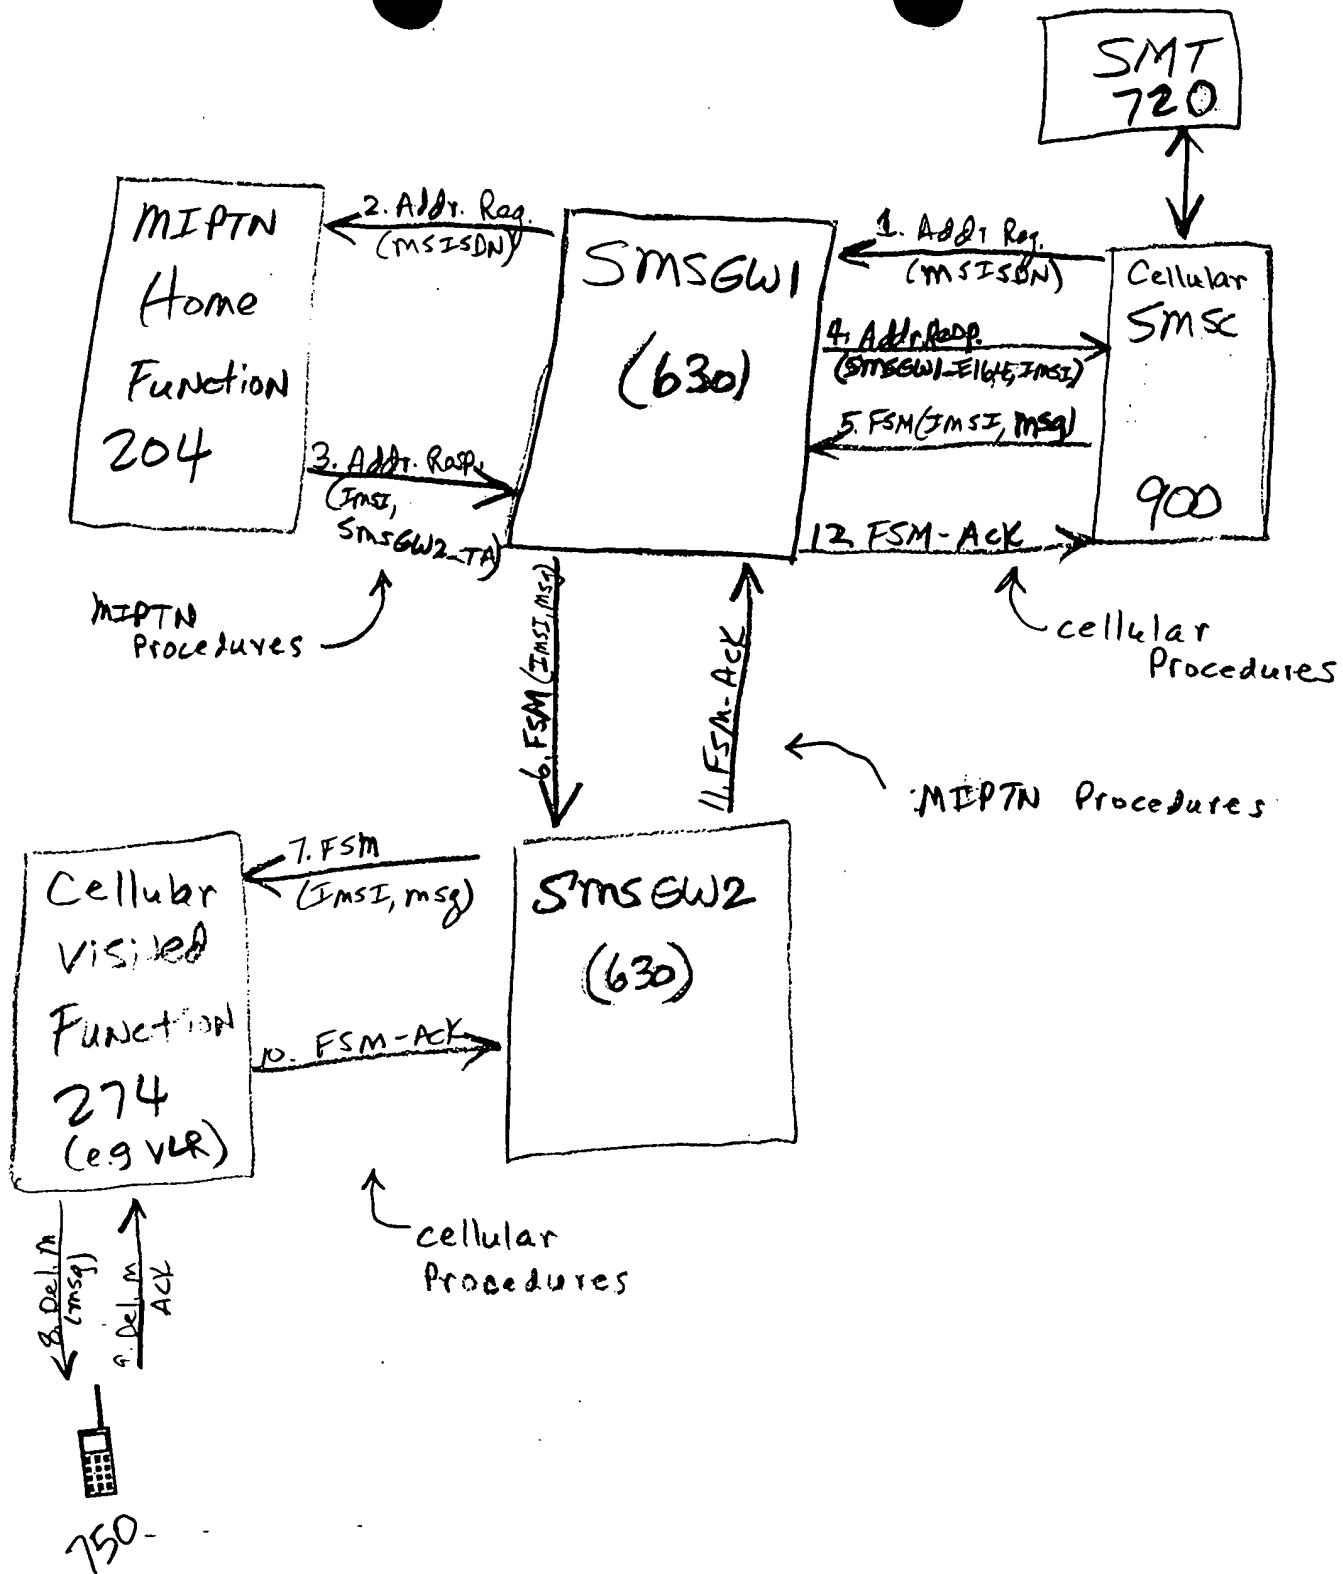 SMT
720
MIPTN
Home
Function
204
2. Addr. Req.
(MSISDN)
SMSGW1
(630)
1. Addr Req.
(MSISDN)
Cellular
SMSC
900
4. Addr. Resp.
5. FSM(IMSI, msg)
3. Addr. Resp.
(IMSI,
SMSGW2_TA)
12. FSM-Ack
MIPTN
Procedures
cellular
Procedures
6. FSM(IMSI, msg)
11. FSM-Ack
MIPTN Procedures
Cellular
Visited
Function
274
(e.g VLR)
7. FSM
(IMSI, msg)
SMSGW2
(630)
10. FSM-Ack
cellular
Procedures
8. Del. M
(msg)
9. Del. M
Ack
750